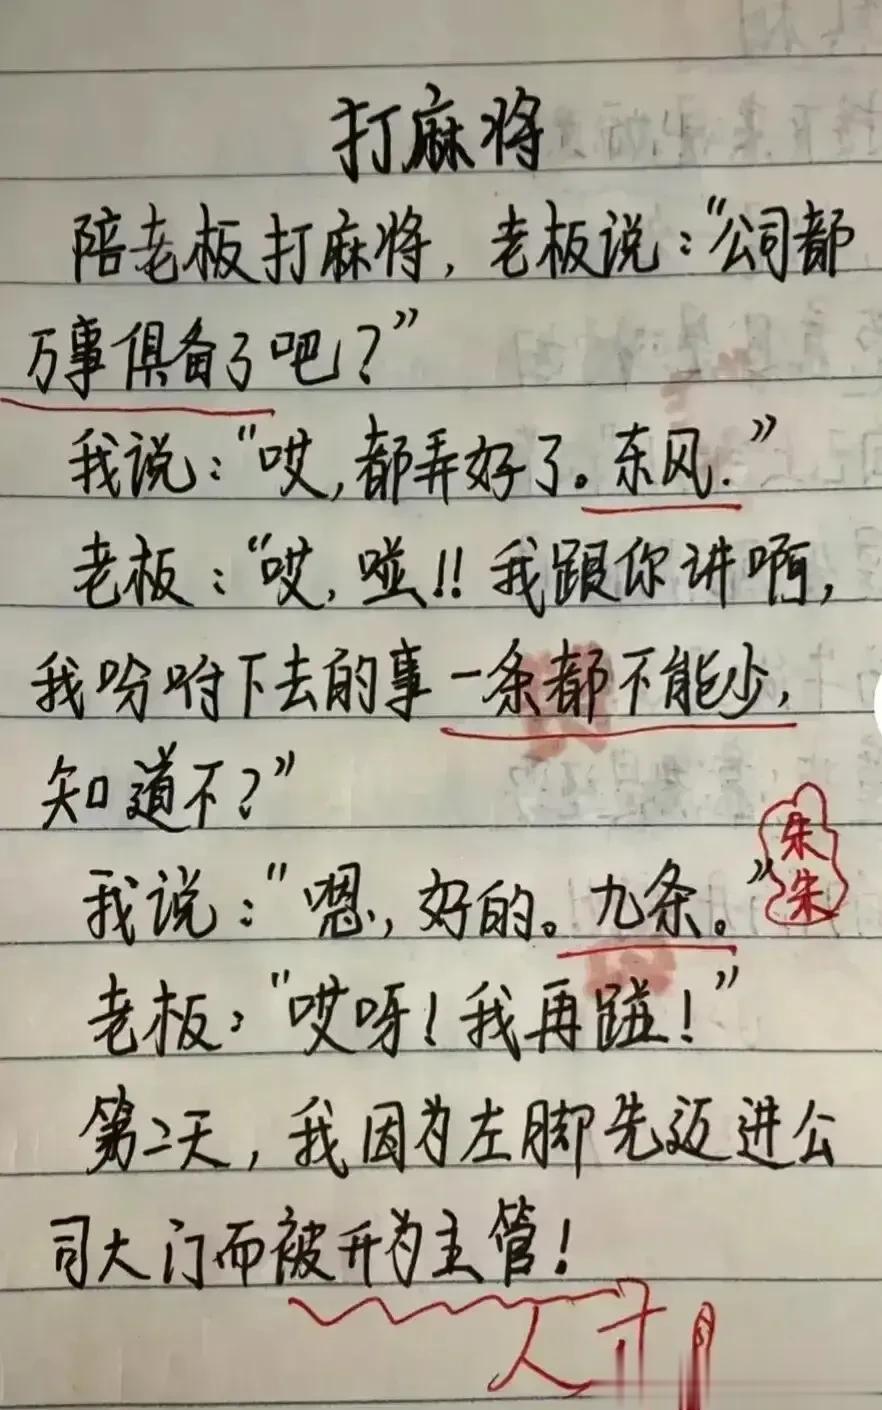 打麻将
陪老板打麻将，老板说："公司都
万事俱备了吧？"
我说："哎，都弄好了。东风."
老板："哎，碰!! 我跟你讲啊，
我吩咐下去的事一条都不能少，
知道不？"
朱
朱
我说："嗯，好的。九条。"
老板："哎呀！我再碰！"
第二天，我因为左脚先迈进公
司大门而被升为主管！
人才